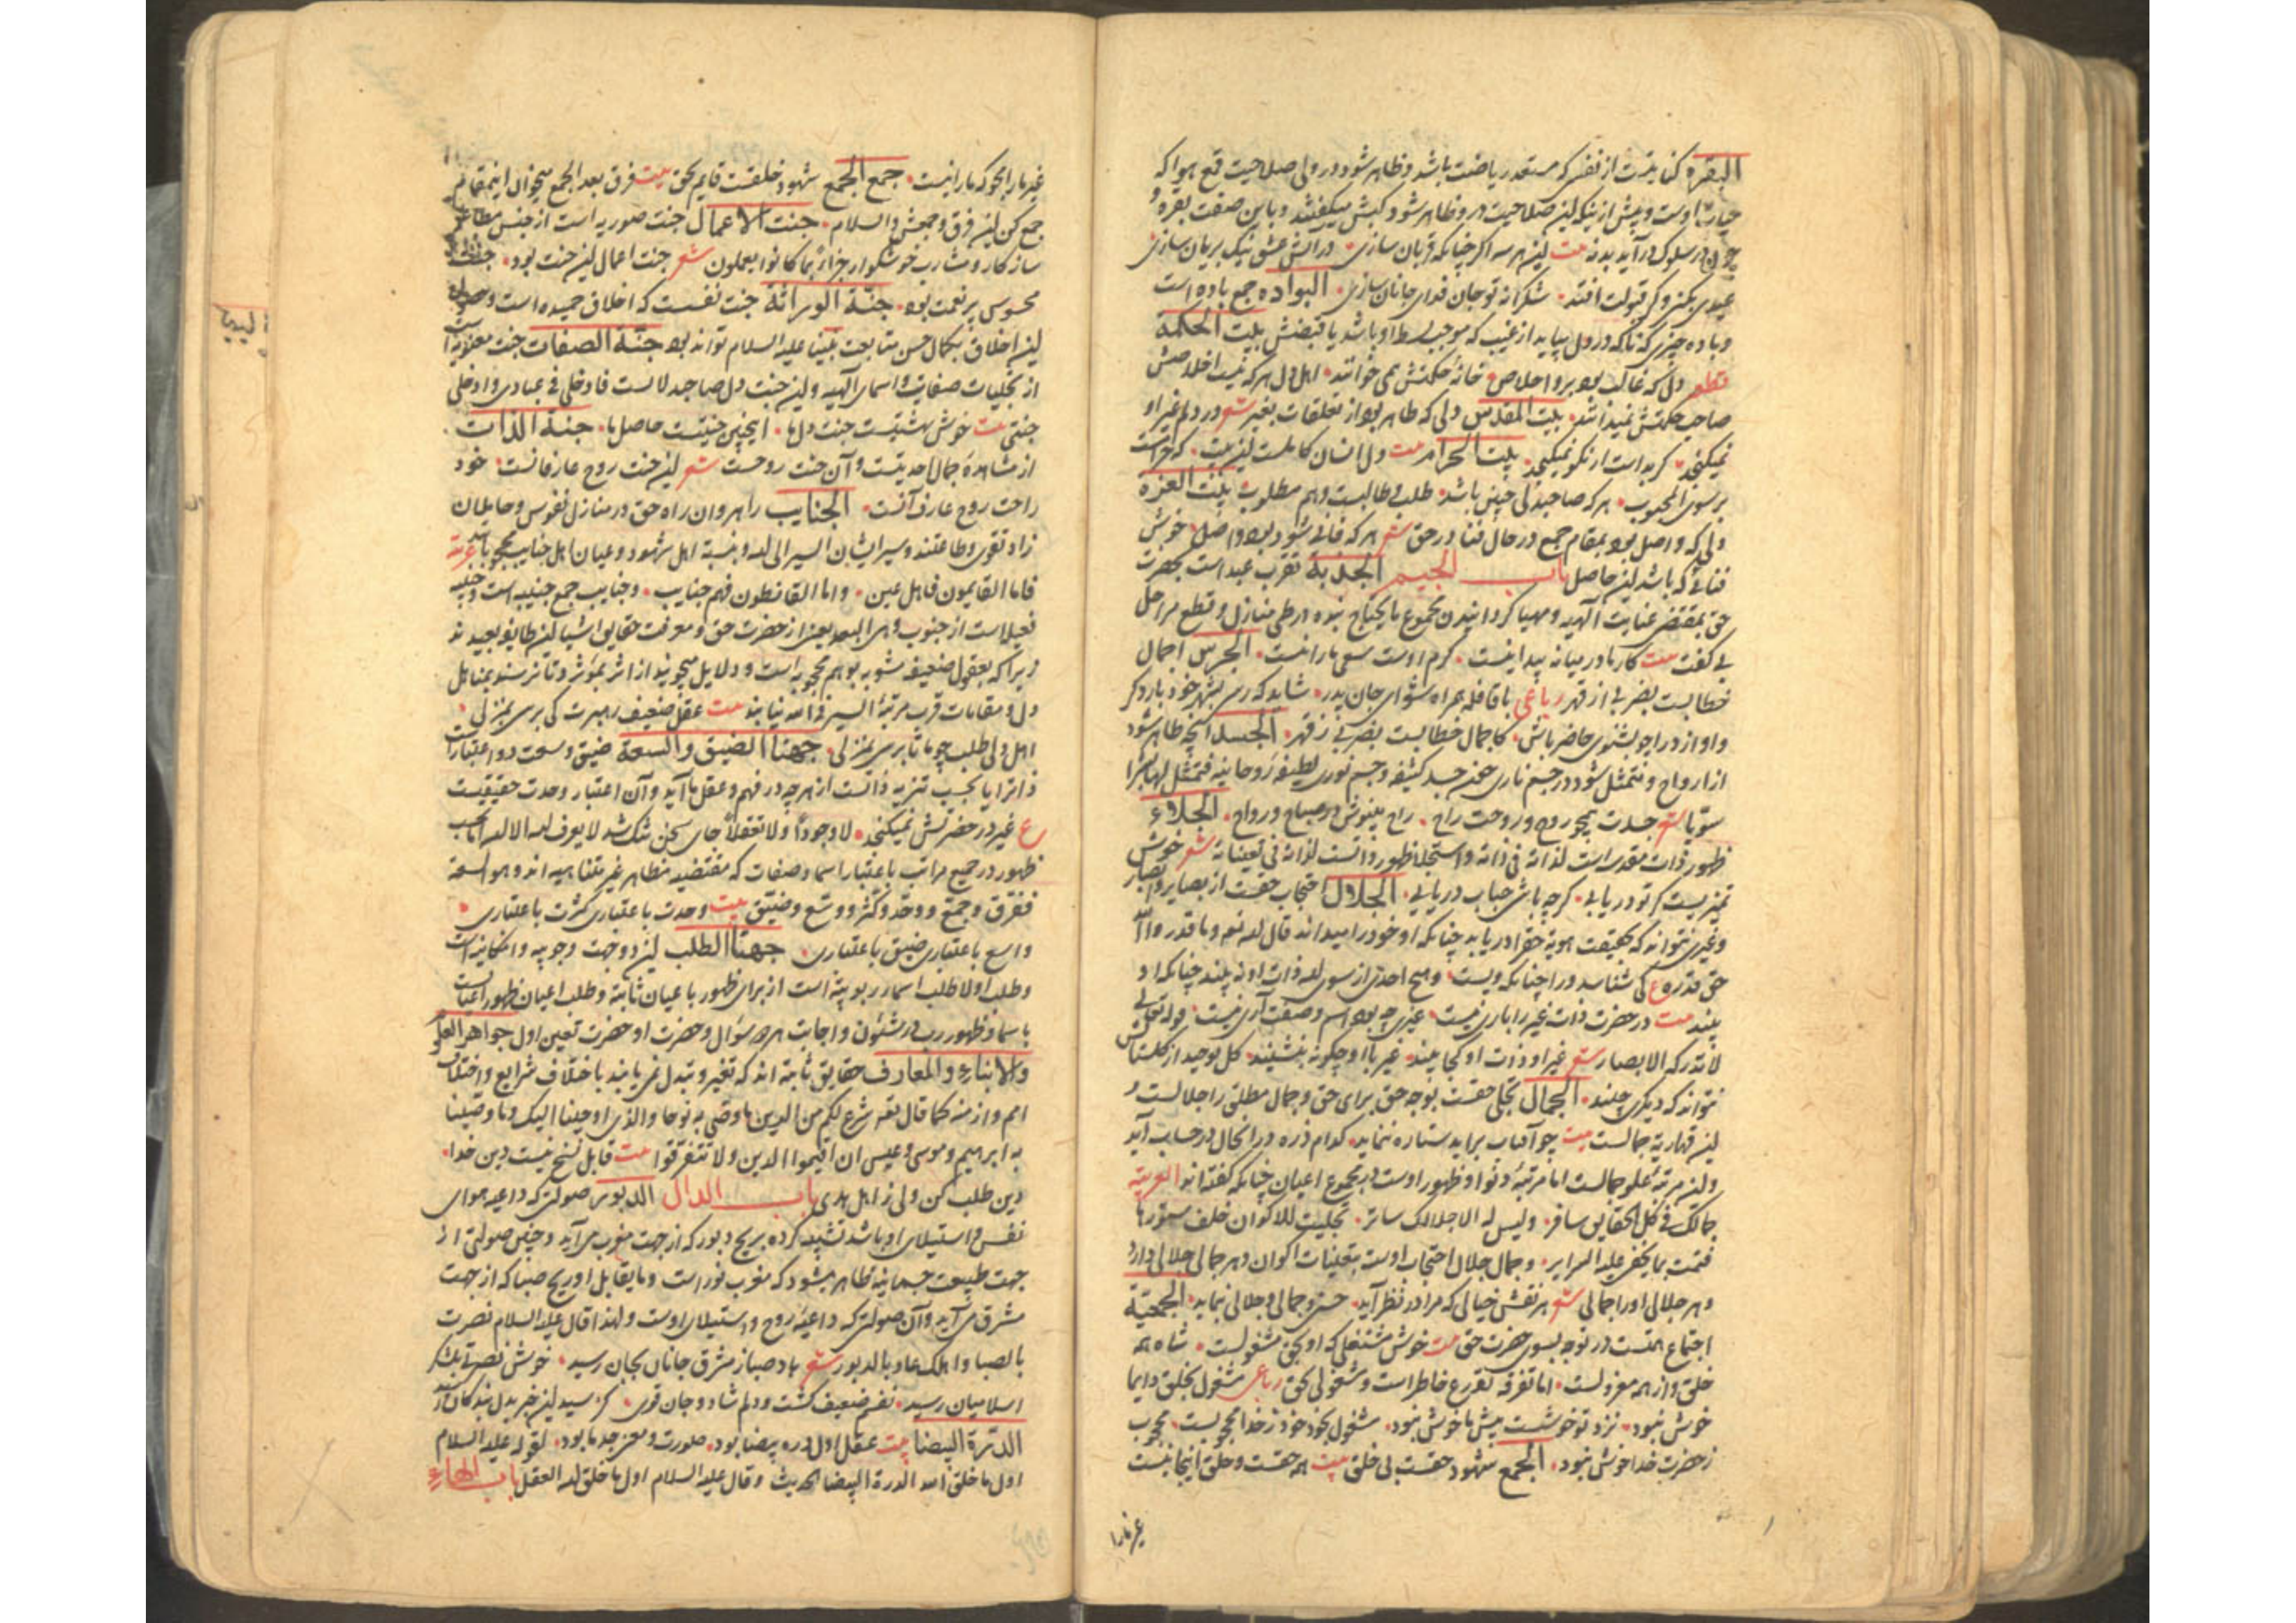 البقره کنایتست از نفس که مستعد ریاضت باشد و ظاهر شود در وی صلاحیت قمع هوا که
حیات اوست و پیش از آنکه این صلاحیت در و ظاهر شود کبش میگفتند و باین صفت بقره و
چون در سلوک در آید بدنه بیت این هر سه اگر چنانکه قربان سازی در آتش عشق نیک بریان سازی
عیدی بکنی و گر قبولت افتد شکرانه تو جان فدای جانان سازی البواده جمع باده است
و باده چیزی که ناگه در دل بیاید از غیب که موجب بسط او باشد یا قبضش بیت الحکمة
قطعه دل که غالب بود برو اخلاص خانهٔ حکمتش همی خوانند اهل دل هر که نیست اخلاصش
صاحب حکمتش نمیدانند بیت المقدس دلی که طاهر بود از تعلقات بغیر شعر در دلم غیر او
نمیگنجد گر بد است ار نکو نمیگنجد بیت الحرام بیت دل انسان کاملست این بیت که حرامست
بر سوی المحبوب هر که صاحبدلی چنین باشد طلب و طالبست و هم مطلوب بیت العزه
دلی که واصل بود بمقام جمع در حال فنا در حق شعر هر که فانی شود بود واصل خوش
فنائی که باشد این حاصل باب الجیم الجذبة تقرب عبد است بحضرت
حق بمقتضی عنایت الهیه و مهیا گردانیدن مجموع مایحتاج بنده در طی منازل و قطع مراحل
بی کلفت بیت کار ما در میانه پیدا نیست کرم اوست سعی ما را نیست الجرس اجمال
خطابست بضربی از قهر رباعی با قافله همراه شو ای جان پدر شاید که رسی بشهر خود بار دگر
و آواز درا چو بشنوی حاضر باش کاجمال خطابست بضربی ز قهر الجسد آنچه ظاهر شود
از ارواح و متمثل شود در جسم ناری جن جسد کثیفه و جسم نوری لطیفه روحانیه فتمثل لها بشرا
سویا شعر جسدت همچو روح و روحت راح راح مینوش در صباح و رواح الجلاء
ظهور ذات مقدسه است لذاته فی ذاته و استجلا ظهور ذاتست لذاته فی تعیناته شعر خوش
تمیزیست گر تو دریابی گر چه باشی حباب دریابی الجلال احتجاب حقست از بصایر و ابصار
و غیری نتواند که بحقیقت هویة حق را دریابد چنانکه او خود را میداند قال الله تعه و ما قدروا الله
حق قدره ع کی شناسد ورا چنانکه ویست و هیچ احدی از سوی الله ذات او نه بیند چنانکه او
بیند بیت در حضرت ذات غیر را باری نیست غیری چه بود اسم و صفت آری نیست قوله تعالی
لا تدرکه الابصار شعر غیر او ذات او کجا بیند غیر با او چگونه بنشیند گل توحید از گلستانش
نتواند که دیگری چیند الجمال تجلی حقست بوجه حق برای حق و جمال مطلق را جلالست و
این قهاریة جمالست بیت چو آفتاب براید ستاره ننماید کدام ذره در انحال در حساب آید
و این مرتبهٔ علو جمالست اما مرتبهٔ دنو او ظهور اوست در مجموع اعیان چنانکه گفته اند العربیة
جمالک فی کل الحقایق سافر و لیس له الا جلالک ساتر تجلیت للاکوان خلف ستورها
فنمت بما یخفی علیه السرایر و جمال جلال احتجاب اوست بتعینات اکوان و هر جمالی جلالی دارد
و هر جلالی او را جمالی شعر هر نقش خیالی که مرا در نظر آید حسن و جمالی و جلالی بنماید الجمعیة
اجتماع همتست در توجه بسوی حضرت حق بیت خوش مشتغلی که او بحق مشغولست شاه همه
خلق و از همه معزولست اما تفرقه تفرع خاطر است و مشغولی بحق رباعی مشغول بخلق دایما
خوش نبود نزد تو خوشست پیش ما خوش نبود مشغول بخود خود ز خدا محجوبست محجوب
ز حضرت خدا خوش نبود الجمع شهود حقست بی خلق بیت همه حقست و خلق اینجا نیست
غیر ما را
غیر ما را بجو که ما را نیست جمع الجمع شهود خلقست قایم بحق بیت فرق بعد الجمع میخوان این مقام
جمع کن این فرق و جمعش والسلام جنت الاعمال جنت صوریه است از جنس مطاعم
سازگار و مشارب خوشگوار جزاءً بما کانوا یعملون شعر جنت اعمال این جنت بود جنت
محسوس پر نعمت بود جنة الوراثة جنت نفس است که اخلاق حمیده است و حصول
این اخلاق بکمال حسن متابعت نبینا علیه السلام تواند بود جنة الصفات جنت معنویه است
از تجلیات صفات و اسمای الهیه و این جنت دل صاحبدلانست فادخلی فی عبادی و ادخلی
جنتی بیت خوش بهشتیست جنت دلها اینچنین جنتیست حاصل ما جنة الذات
از مشاهدهٔ جمال احدیتست و آن جنت روحست شعر این جنت روح عارفانست خود
راحت روح عارف آنست الجنایب راهروان راه حق در منازل نفوس و حاملان
زاد تقوی و طاعتند و سیر ایشان السیر الی الله و بنسبة اهل شهود و عیان اهل جنایب محجوبانند عربیة
فاما القایمون فاهل عین و اما القانطون فهم جنایب و جنایب جمع جنیبه است و جنیبه
فعیلاست از جنوب و هی البعد یعنی از حضرت حق و معرفت حقایق اشیا این طایفه بعیدند
زیرا که بعقول ضعیف مشوب بوهم محجوبه راست و دلایل میجویند از اثر بموثر و تا نرسند بمنازل
دل و مقامات قرب مرتبهٔ السیر فی الله نیابند بیت عقل ضعیف رهبرت کی برسی بمنزلی
اهل دلی طلب چو ما تا برسی بمنزلی جهتا الضیق والسعة ضیق و سعت دو اعتبار است
ذاترا یا بحسب تنزیه ذاتست از هر چه در فهم و عقل ما آید و آن اعتبار وحدت حقیقیست
ع غیر در حضرتش نمیگنجد لا وجوداً و لا تعقلاً جای سخن تنگ شد لا یعرف الله الا الله اما بحسب
ظهور در جمیع مراتب باعتبار اسما و صفات که مقتضیه مظاهر غیر متناهیه اند و هو السعة
ففرق و جمع و وحد و کثر و وسع و ضیق بیت وحدت باعتباری کثرت باعتباری
واسع باعتباری ضیق باعتباری جهتا الطلب این دو جهت وجوبیه و امکانیه است
و طلب اولا طلب اسماء ربوبیته است از برای ظهور باعیان ثابته و طلب اعیان ظهور اعیانست
باسما و ظهور رب در شئون و اجابت هر دو سؤال و حضرت او حضرت تعین اول جواهر العلوم
والانباء والمعارف حقایق ثابته اند که تغیر و تبدل نمی یابند باختلاف شرایع و اختلاف
امم و ازمنه کما قال تعه شرع لکم من الدین ما وصی به نوحا والذی اوحینا الیک وما وصینا
به ابرهیم و موسی و عیسی ان اقیموا الدین و لا تتفرقوا بیت قابل نسخ نیست دین خدا
دین طلب کن ولی ز اهل هدی باب الدال الدبور صولتی که داعیه هوای
نفس و استیلای او باشد تشبیه کرده بریح دبور که از جهت مغرب می آید و چنین صولتی از
جهت طبیعت جسمانیه ظاهر میشود که مغرب نور است و ما یقابل او ریح صبا که از جهت
مشرق می آید و آن صولتی که داعیهٔ روح و استیلای اوست و لهذا قال علیه السلام نصرت
بالصبا و اهلک عاد بالدبور شعر باد صبا ز مشرق جانان بجان رسید خوش نصرتی بلشکر
اسلامیان رسید نفس ضعیف گشت و دلم شاد و جان قوی
الدرة البیضا بیت عقل اول دره بیضا بود صورت و معنی جد ما بود لقوله علیه السلام
اول ما خلق الله الدرة البیضا الحدیث و قال علیه السلام اول ما خلق الله العقل باب الهاء